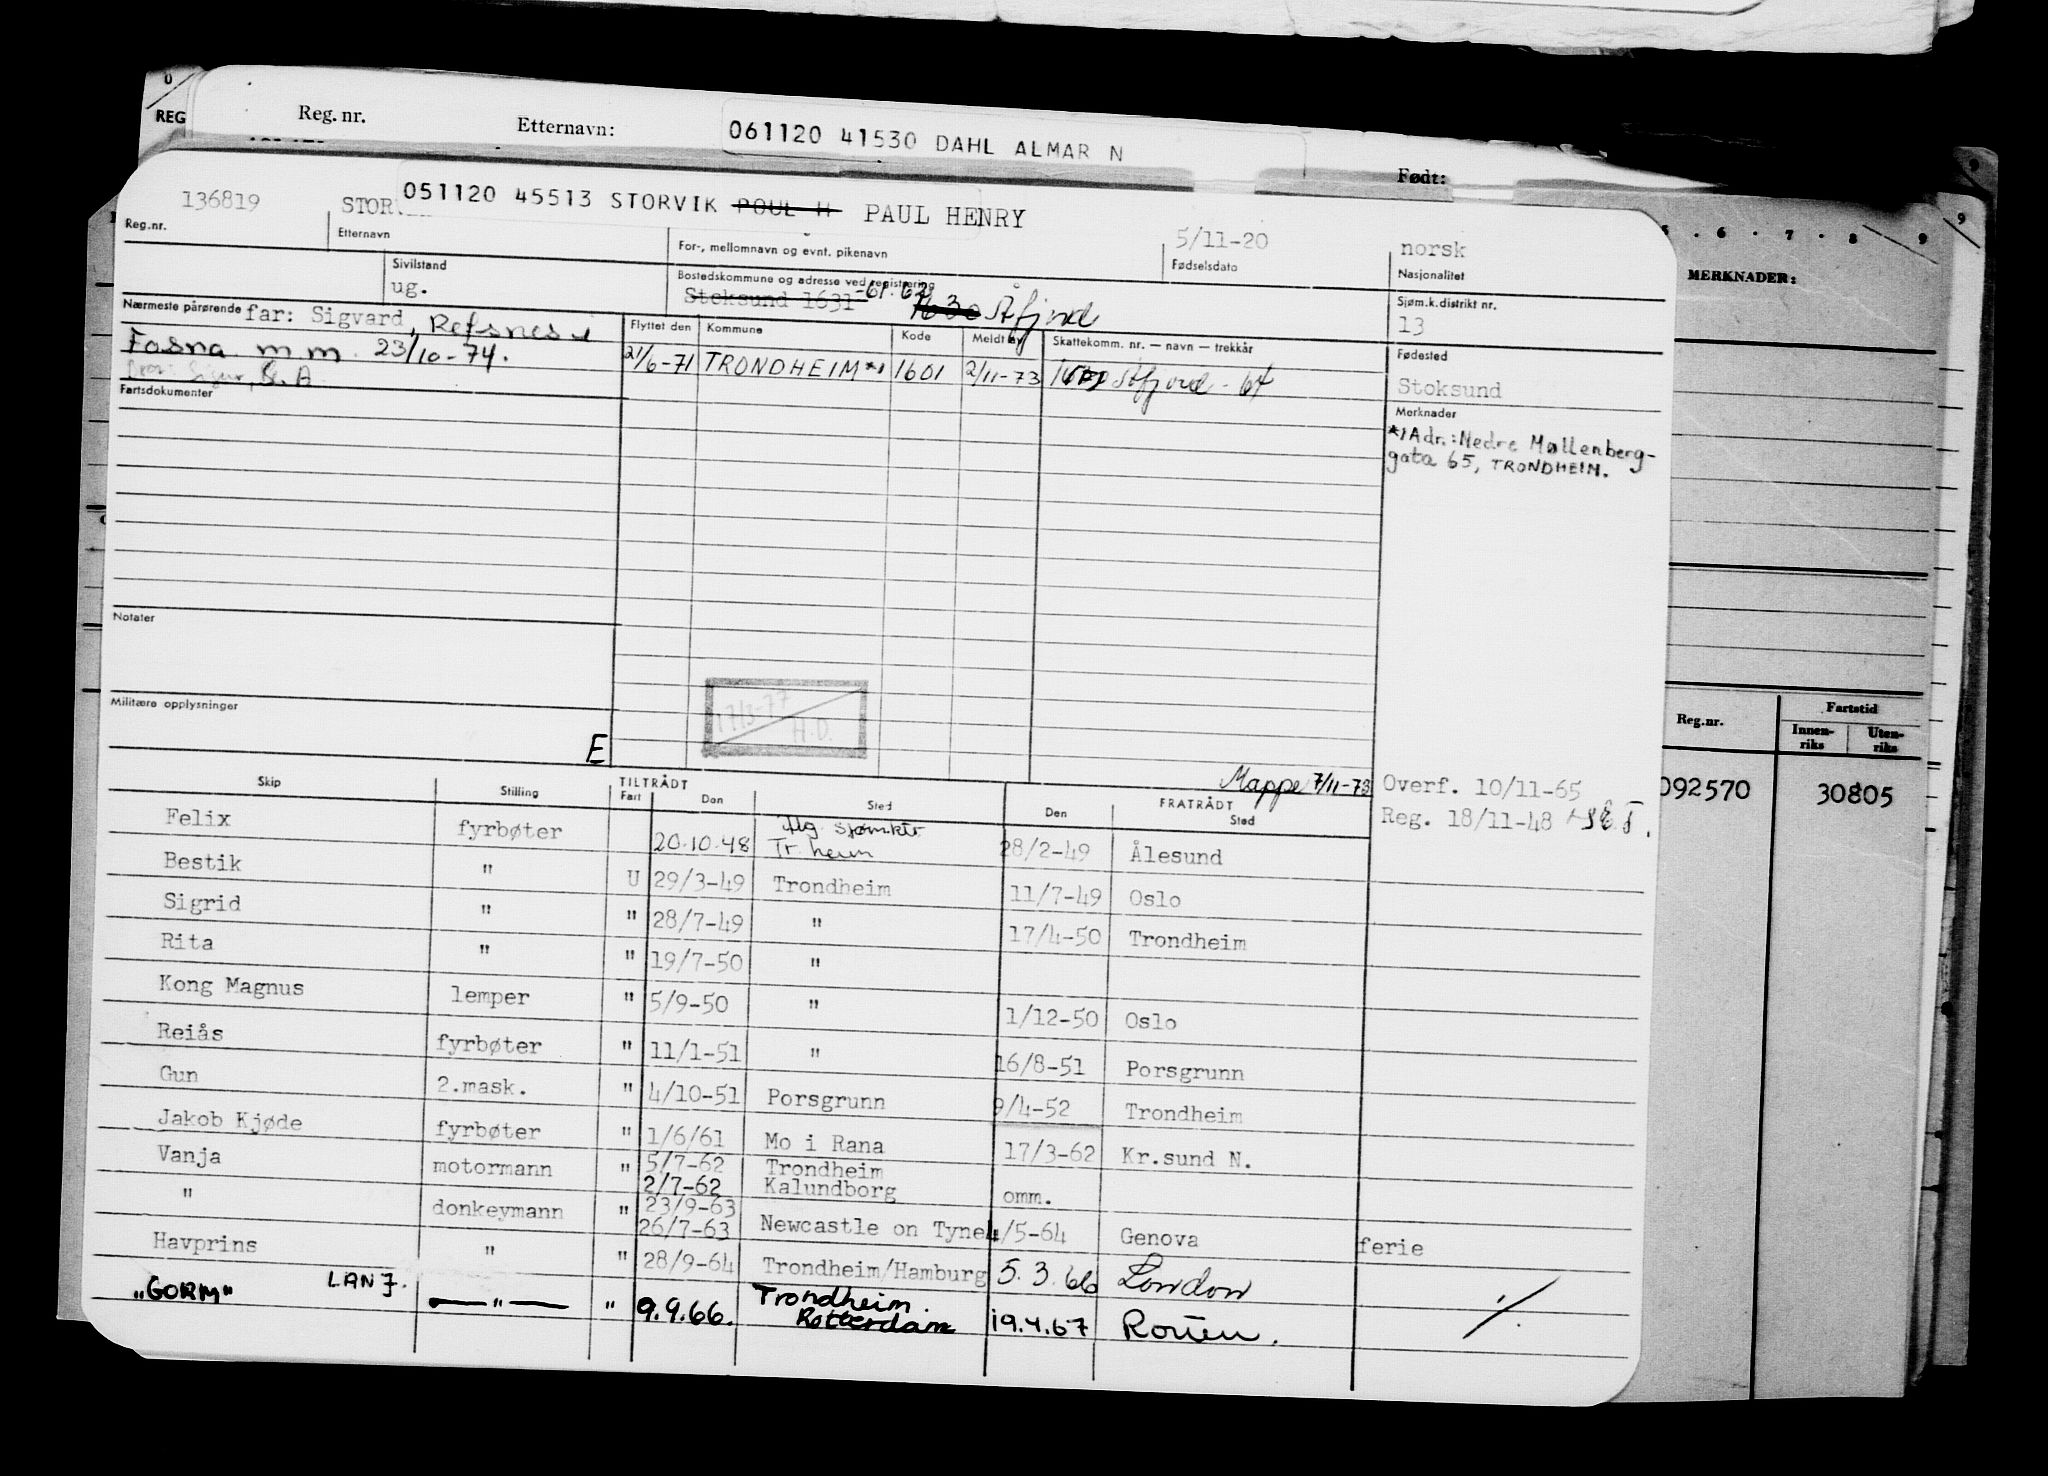 0
REG
Reg. nr.
Etternavn:
061120 41530 DAHL ALMAR N
Født:
136819
STOR
051120 45513 STORVIK POUL H PAUL HENRY
5/11-20
norsk
Reg.nr.
Etternavn
For-, mellomnavn og evnt. pikenavn
Fødselsdato
Nasjonalitet
Sivilstand
ug.
Bostedskommune og adresse ved registrering
Stoksund 1631 -61.62 1630 Åfjord
Sjøm.k.distrikt nr.
13
Nærmeste pårørende far: Sigvard, Refsnes i
Fosna m m 23/10-74.
Flyttet den
Kommune
Kode
Meldt av
Skattekomm. nr. — navn — trekkår
Fødested
21/6-71 TRONDHEIM *) 1601 2/11-73 Åfjord - 64
Stoksund
Fartsdokumenter
Merknader
*) Adr.: Nedre Møllenberg-
gata 65, TRONDHEIM.
Notater
17/3-77
H.O.
Militære opplysninger
E
Mappe 7/11-73
Overf. 10/11-65
Reg. 18/11-48
Skip
Stilling
TILTRÅDT
Fart
Den
Sted
FRATRÅDT
Den
Sted
Felix fyrbøter 20.10.48 Mg. sjømktr Tr.heim 28/2-49 Ålesund
Bestik " U 29/3-49 Trondheim 11/7-49 Oslo
Sigrid " " 28/7-49 " 17/4-50 Trondheim
Rita " " 19/7-50 "
Kong Magnus lemper " 5/9-50 " 1/12-50 Oslo
Reiås fyrbøter " 11/1-51 " 16/8-51 Porsgrunn
Gun 2.mask. " 4/10-51 Porsgrunn 9/4-52 Trondheim
Jakob Kjøde fyrbøter " 1/6/61 Mo i Rana 17/3-62 Kr.sund N.
Vanja motormann " 5/7-62 Trondheim
2/7-62 Kalundborg omm.
" donkeymann " 23/9-63
26/7-63 Newcastle on Tyne 4/5-64 Genova ferie
Havprins " " 28/9-64 Trondheim/Hamburg 5.3.66 London
"GORM" LANJ. — " — " 9.9.66. Trondheim. Rotterdam 19.4.67 Rouen. ./.
5 . 6 . 7 . 8 9
9
MERKNADER:
Reg.nr.
Fartstid
Innen-
riks
Uten-
riks
092570
30805